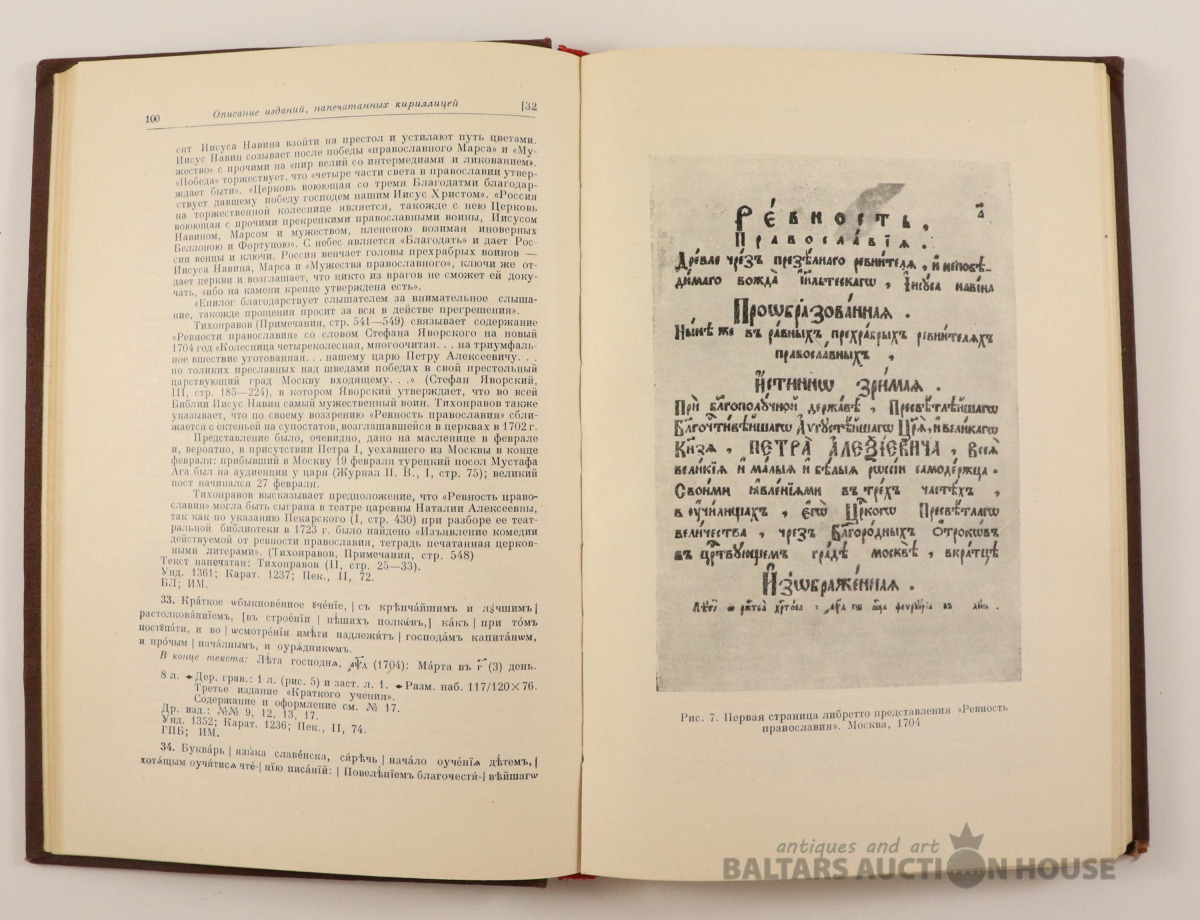 100
Описание изданий, напечатанных кириллицей
[32
сит Иисуса Навина взойти на престол и устилают путь цветами.
Иисус Навин созывает после победы «православного Марса» и «Му-
жество» с прочими на «пир велий со интермедиами и ликованием».
«Победа» торжествует, что «четыре части света в православии утвер-
ждает быти». «Церковь воюющая со тремя Благодатми благодар-
ствует давшему победу господем нашим Иисус Христом». «Россия
на торжественной колеснице является, такожде с нею Церковь
воюющая с прочими прекрепкими православными воины, Иисусом
Навином, Марсом и мужеством, плененою возимая иноверных
Беллоною и Фортуною». С небес является «Благодать» и дает Рос-
сии венцы и ключи. Россия венчает головы прехрабрых воинов —
Иисуса Навина, Марса и «Мужества православного», ключи же от-
дает церкви и возглашает, что никто из врагов не сможет ей доку-
чать, «ибо на камени кренце утверждена есть».
«Епилог благодарствует слышателем за внимательное слыша-
ние, такожде прощения просит за вся в действе прегрешения».
Тихонравов (Примечания, стр. 541—549) связывает содержание
«Ревности православия» со словом Стефана Яворского на новый
1704 год «Колесница четыреколесная, многоочитая. . . на триумфаль-
ное вшествие уготованная. . . нашему царю Петру Алексеевичу. . .
по толиких преславных над шведами победах в свой престольный
царствующий град Москву входящему. . .» (Стефан Яворский,
III, стр. 185—224), в котором Яворский утверждает, что во всей
Библии Иисус Навин самый мужественный воин. Тихонравов также
указывает, что по своему воззрению «Ревность православия» сбли-
жается с ектеньей на супостатов, возглашавшейся в церквах в 1702 г.
Представление было, очевидно, дано на масленице в феврале
и, вероятно, в присутствии Петра I, уехавшего из Москвы в конце
февраля: прибывший в Москву 19 февраля турецкий посол Мустафа
Ага был на аудиенции у царя (Журнал П. В., I, стр. 75); великий
пост начинался 27 февраля.
Тихонравов высказывает предположение, что «Ревность право-
славия» могла быть сыграна в театре царевны Наталии Алексеевны,
так как по указанию Пекарского (I, стр. 430) при разборе ее теат-
ральной библиотеки в 1723 г. было найдено «Изъявление комедии
действуемой от ревности православия, тетрадь печатанная церков-
ными литерами». (Тихонравов, Примечания, стр. 548)
Текст напечатан: Тихонравов (II, стр. 25—33).
Унд. 1361; Карат. 1237; Пек., II, 72.
БЛ; ИМ.
33. Краткое ѡбыкновенное ꙋченїе, | съ крѣпча́йшим и лꙋ́чшим |
растолкова́нїем, [въ строе́нїи | пѣ́ших полкѡ́въ,] ка́къ | при то́мъ
постꙋпа́ти, и во | ѡсмотре́нїи имѣ́ти надлежи́тъ | господа́м капита́нѡм,
и про́чым | нача́лным, и оурѧ́дникѡмъ.
В конце текста: Лѣ́та господнѧ, ҂аѱд (1704): Ма́рта въ г҃ (3) день.
8 л. Дер. грав.: 1 л. (рис. 5) и заст. л. 1. Разм. наб. 117/120×76.
Третье издание «Краткого учения».
Содержание и оформление см. № 17.
Др. изд.: №№ 9, 12, 13, 17.
Унд. 1352; Карат. 1236; Пек., II, 74.
ГПБ; ИМ.
34. Буква́рь | ѧзы́ка славе́нска, си́рѣчь | нача́ло оуче́нїѧ дѣ́темъ, |
хотѧ́щым оучи́тисѧ чте́-| нїю писа́нїй: | Повелѣ́нїемъ благочести́-| вѣ́йшагѡ
Ре́вность,
Правосла́вїѧ.
Дре́вле чре́зъ презѣ́лнаго ревни́телѧ, и непобѣ-
ди́маго вожда̀ і҆и҃лтескагѡ, Їисꙋса наві́на
Проѡбразова́нная.
Ны́нѣ же въ ра́вныхъ прехра́брыхъ ревни́телѧхъ
правосла́вныхъ,
И҆́стиннѡ зри́мая.
При бл҃гополꙋ́чной держа́вѣ, Пресвѣтлѣ́йшагѡ
Бл҃гочⷭ҇ти́вѣйшагѡ А҆́ѵгꙋстѣйшагѡ Цр҃ѧ̀, и вели́кагѡ
Кн҃зѧ, ПЕТРА̀ А҆ЛЕѮІ́ЕВИЧА, Всеѧ̀
вели́кїѧ и ма́лыѧ и бѣ́лыѧ рѡссі́и самоде́ржца.
Свои́ми ꙗ҆вле́нїѧми въ тре́хъ часте́хъ,
в ꙋ҆чи́лищахъ, є҆гѡ̀ Цр҃кого Пресвѣ́тлагѡ
вели́чества, чрез̾ Бл҃горо́дныхъ Ѻ҆́трокѡвъ
въ црⷭ҇твꙋющемъ гра́дѣ москвѣ̀, вкра́тцѣ
И҆зѡбраже́нная.
Рис. 7. Первая страница либретто представления «Ревность
православия». Москва, 1704
antiques and art
BALTARS AUCTION HOUSE